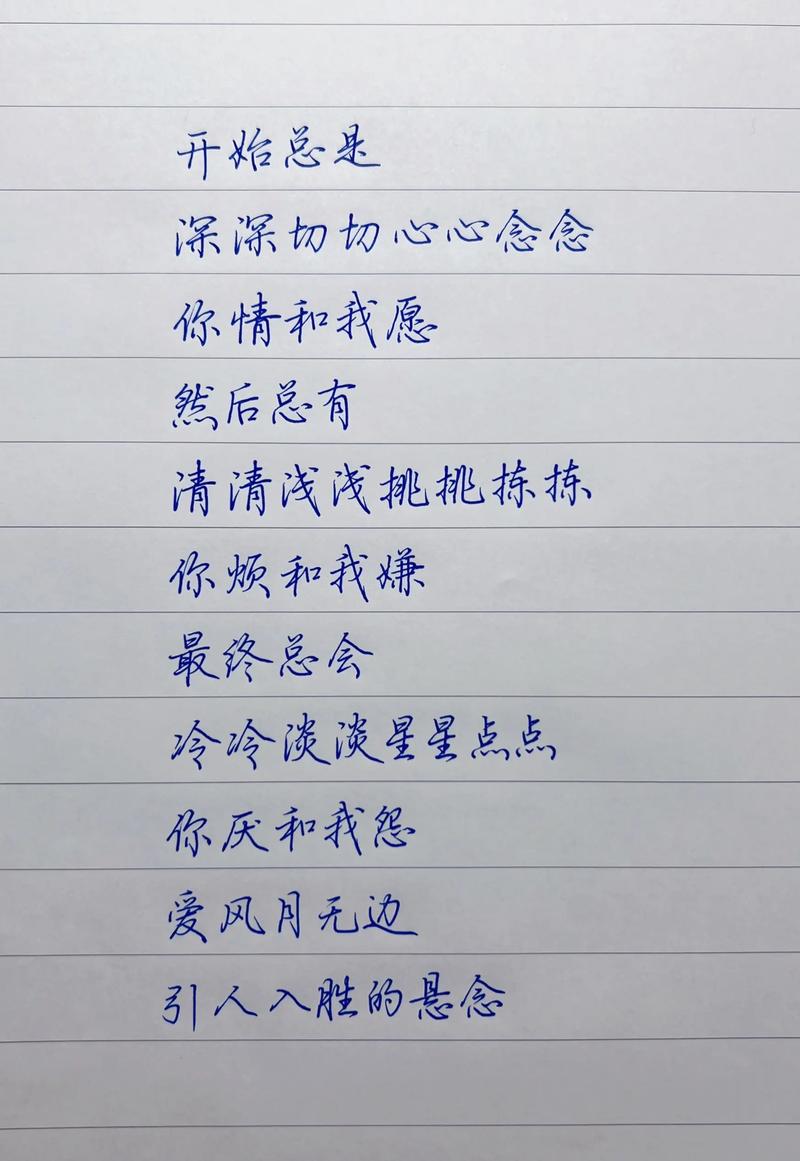 开始总是
深深切切心心念念
你情和我愿
然后总有
清清浅浅挑挑拣拣
你烦和我嫌
最终总会
冷冷淡淡星星点点
你厌和我怨
爱风月无边
引人入胜的悬念